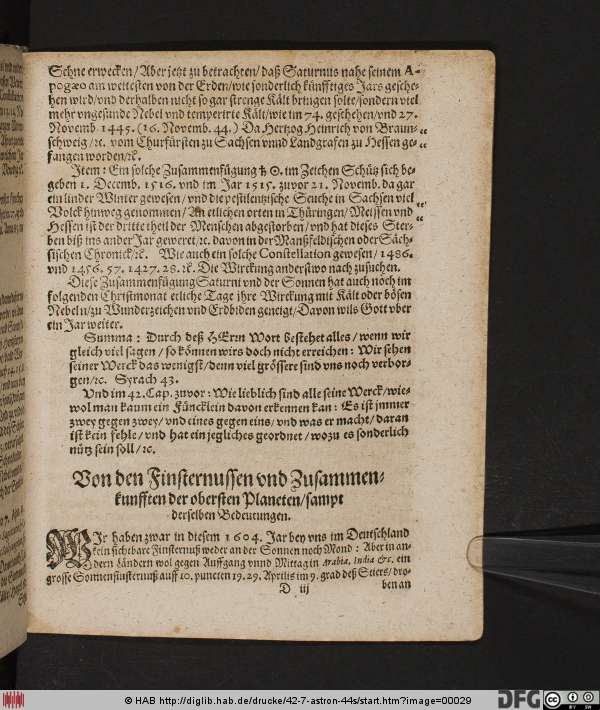 Sehne erwecken / Aber jetzt zu betrachten / daß Saturnus nahe seinem A-
pogæo am weitesten von der Erden / wie sonderlich künfftiges Jars gesche-
hen wird / vnd derhalben nicht so gar strenge Kält bringen solte / sondern viel
mehr vngesunde Nebel vnd temperirte Kält / wie im 74. geschehen / vnd 27.
Novemb 1445. (16. Novemb. 44.) Da Hertzog Heinrich von Braun-
schweig / ꝛc. vom Churfürsten zu Sachsen vnnd Landgrafen zu Hessen ge-
fangen worden / ꝛc.
Item: Ein solche Zusammenfügung ♄ ☉. im Zeichen Schütz sich be-
geben 1. Decemb. 1516. vnd im Jar 1515. zuvor 21. Novemb. da gar
ein linder Winter gewesen / vnd die pestilentzische Seuche in Sachsen viel
Volck hinweg genommen / An etlichen orten in Thüringen / Meissen vnd
Hessen ist der dritte theil der Menschen abgestorben / vnd hat dieses Ster-
ben biß ins ander Jar geweret / ꝛc. davon in der Manßfeldischen oder Säch-
sischen Chronick / ꝛc. Wie auch ein solche Constellation gewesen / 1486.
vnd 1456. 57. 1427. 28. ꝛc. Die Wirckung anderswo nach zusuchen.
Diese Zusammenfügung Saturni vnd der Sonnen hat auch noch im
folgenden Christmonat etliche Tage ihre Wirckung mit Kält oder bösen
Nebeln / zu Wunderzeichen vnd Erdbiden geneigt / Davon wils Gott vber
ein Jar weiter.
Summa: Durch deß HErrn Wort bestehet alles / wenn wir
gleich viel sagen / so können wirs doch nicht erreichen: Wir sehen
seiner Werck das wenigst / denn viel grössere sind vns noch verbor-
gen / ꝛc. Syrach 43.
Vnd im 42. Cap. zuvor: Wie lieblich sind alle seine Werck / wie-
wol man kaum ein Füncklein davon erkennen kan: Es ist jmmer
zwey gegen zwey / vnd eines gegen eins / vnd was er macht / daran
ist kein fehle / vnd hat ein jegliches geordnet / wozu es sonderlich
nütz sein soll / ꝛc.
Von den Finsternussen vnd Zusammen-
kunfften der obersten Planeten / sampt
derselben Bedeutungen.
WIr haben zwar in diesem 1604. Jar bey vns im Deutschland
kein sichtbare Finsternuß weder an der Sonnen noch Mond: Aber in an-
dern Ländern wol gegen Auffgang vnnd Mittag in Arabia, India &c. ein
grosse Sonnenfinsternuß auff 10. puncten 19. 29. Aprilis im 9. grad deß Stiers / dro-
D iij
ben an
© HAB http://diglib.hab.de/drucke/42-7-astron-44s/start.htm?image=00029
DFG
cc
BY SA